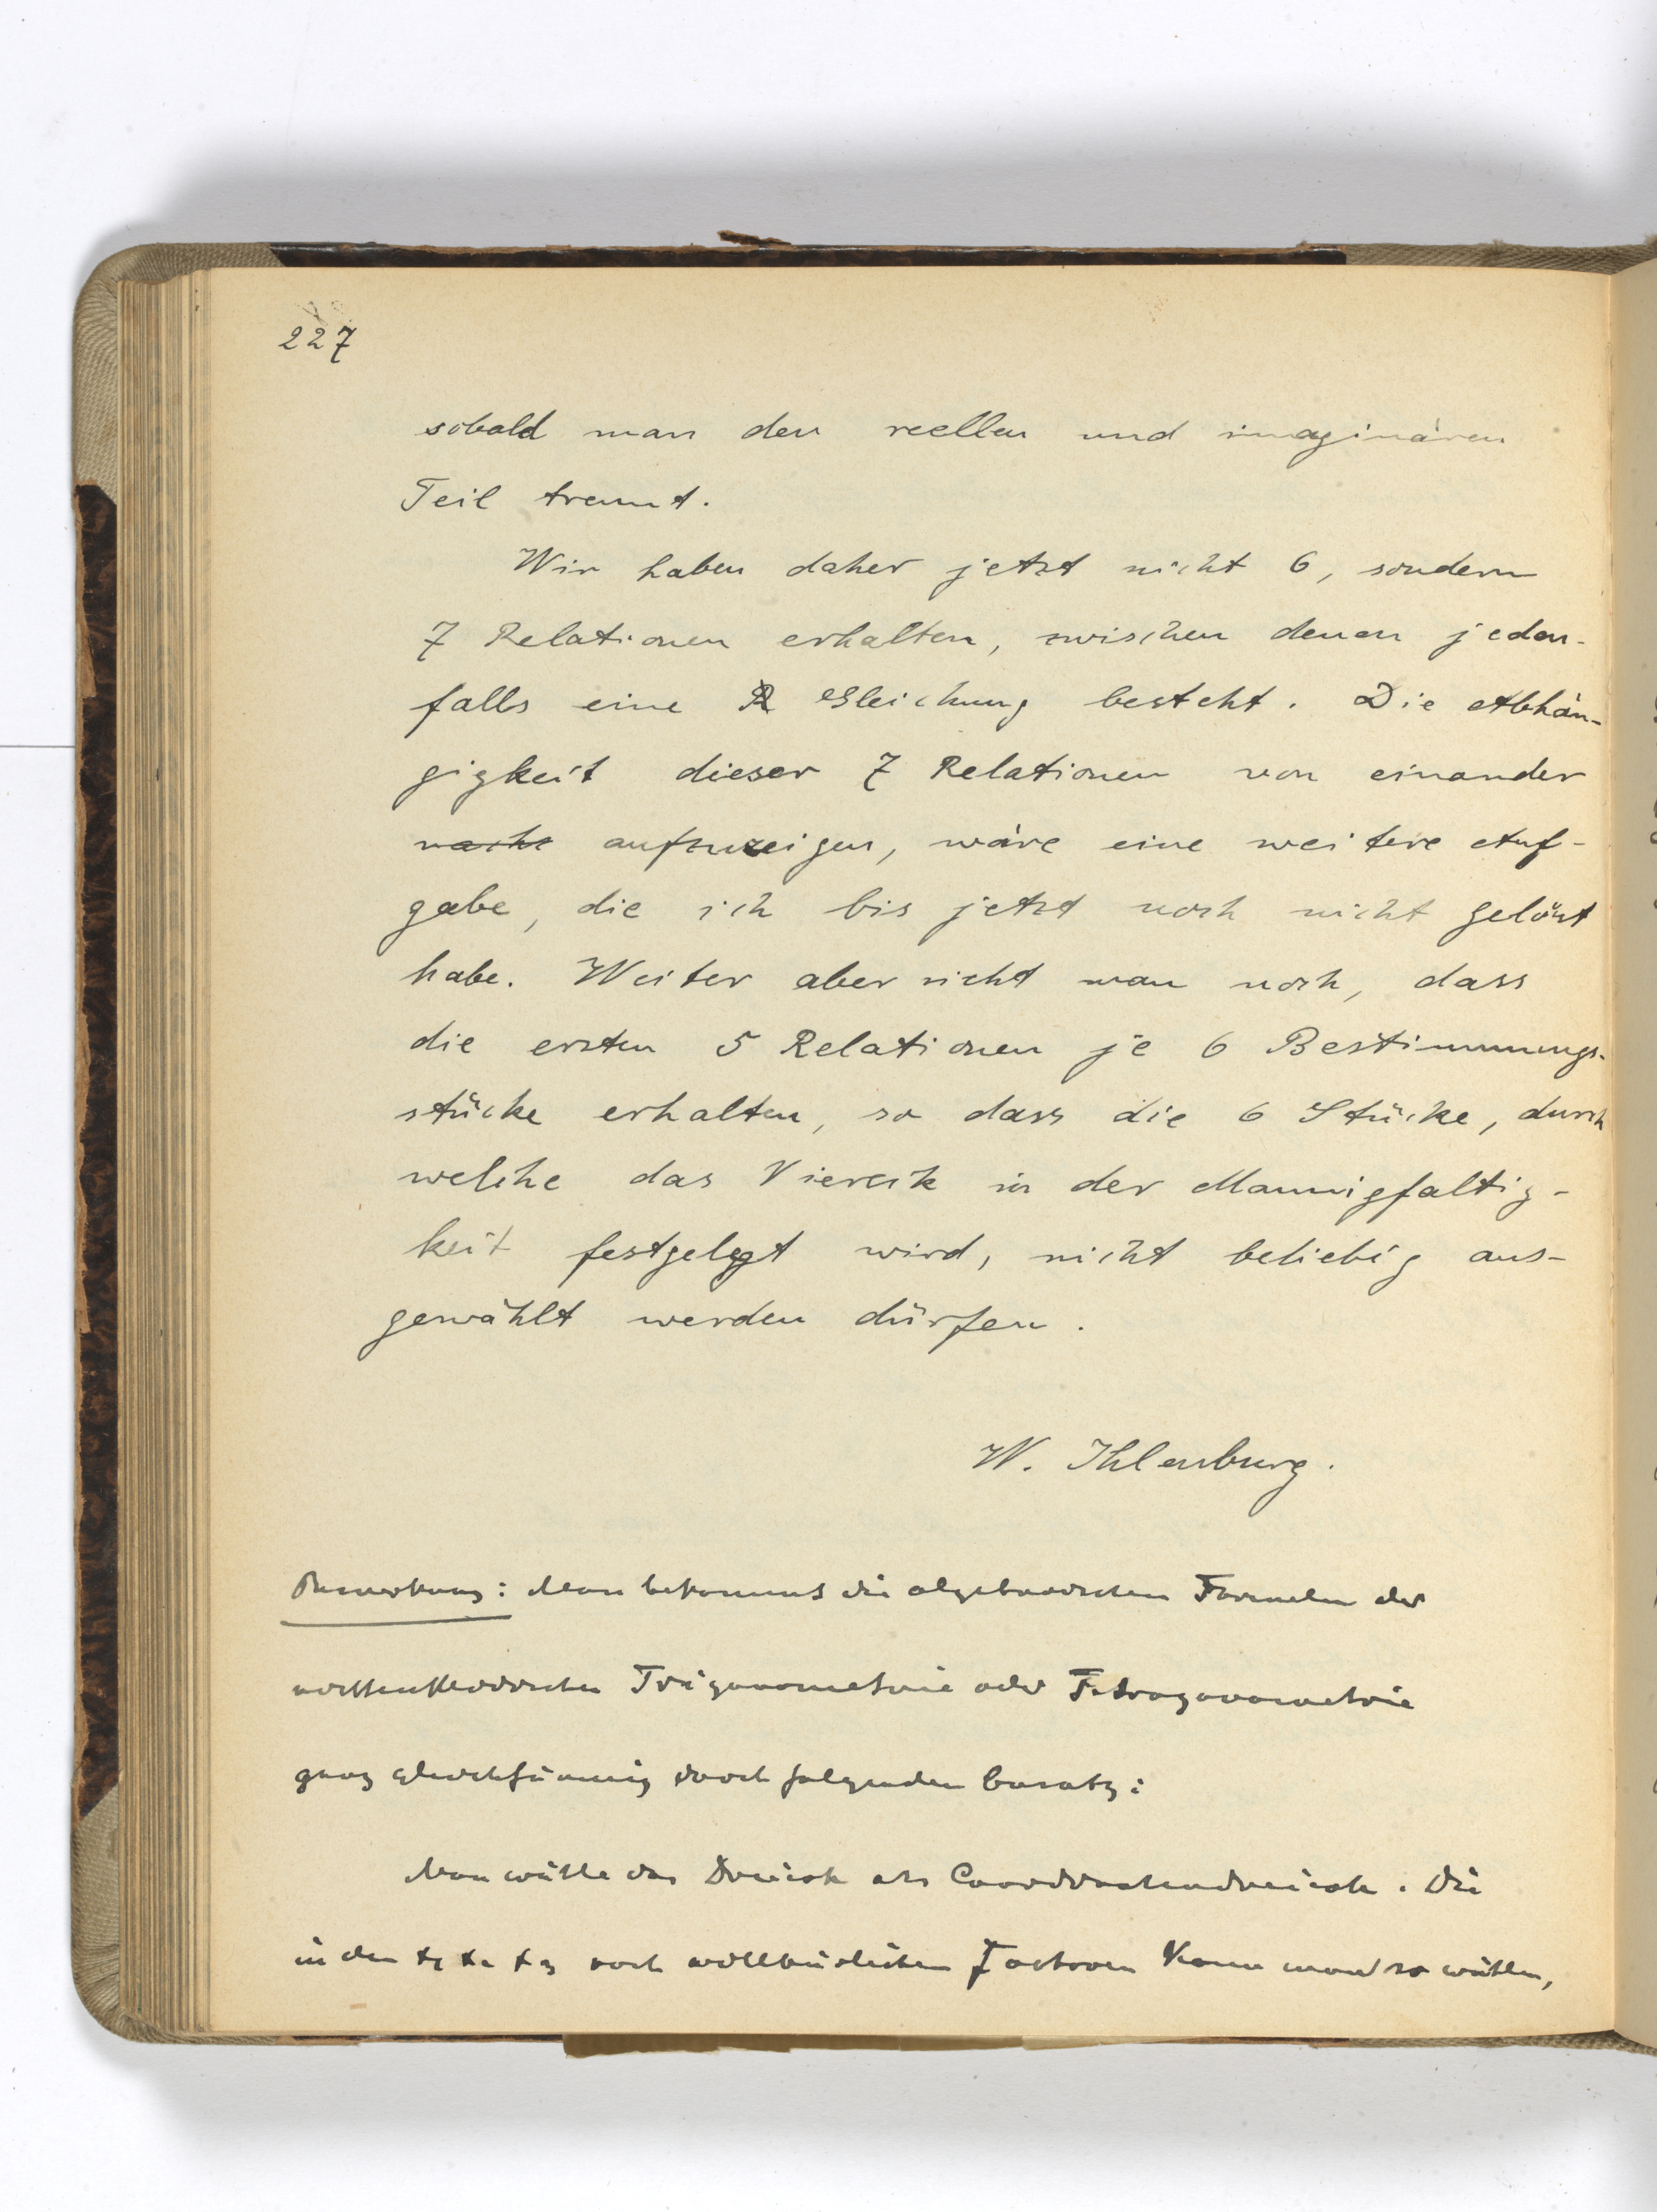 227
sobald man den reellen und imaginären
Teil trennt.
Wir haben daher jetzt nicht 6, sondern
7 Relationen erhalten, zwischen denen jeden-
falls eine R Gleichung besteht. Die Abhän-
gigkeit dieser 7 Relationen von einander
aufzuzeigen, wäre eine weitere Auf-
gabe, die ich bis jetzt noch nicht gelöst
habe. Weiter aber sieht man noch, dass
die ersten 5 Relationen je 6 Bestimmungs-
stücke erhalten, so dass die 6 Stücke, durch
welche das Viereck in der Mannigfaltig-
keit festgelegt wird, nicht beliebig aus-
gewählt werden dürfen.
W. Ihlenburg.
Bemerkung: Man bekommt die algebraischen Formeln der
Trigonometrie oder Tetragonometrie
ganz gleichförmig durch folgenden Ansatz:
Man wähle das Dreieck als Coordinatendreieck. Die
in den x₁ x₂ x₃ noch willkürlichen Factoren kann man so wählen,